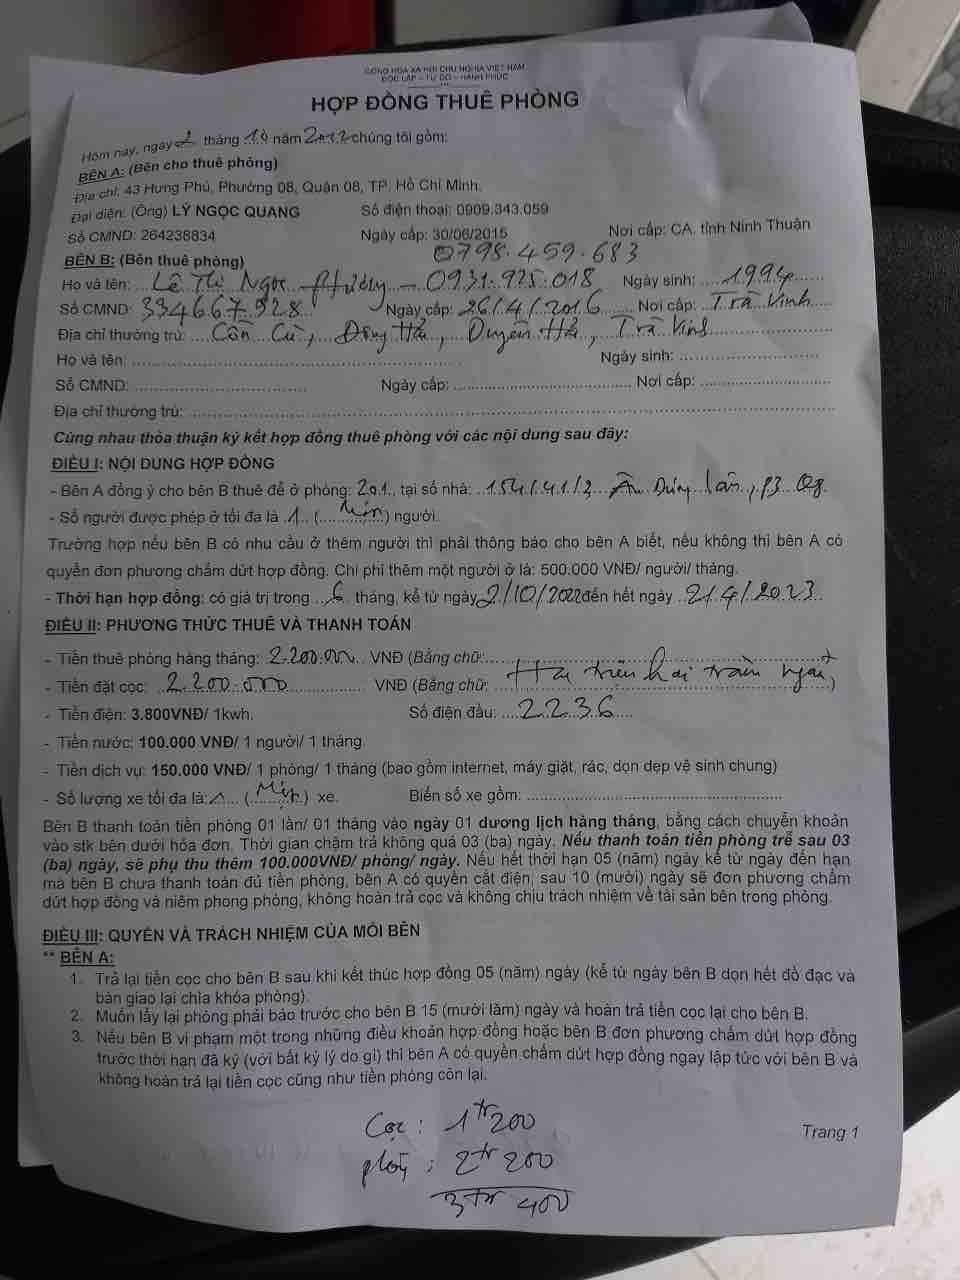 CỘNG HÒA XÃ HỘI CHỦ NGHĨA VIỆT NAM
ĐỘC LẬP – TỰ DO – HẠNH PHÚC
HỢP ĐỒNG THUÊ PHÒNG
Hôm nay, ngày 2 tháng 10 năm 2022 chúng tôi gồm:
BÊN A: (Bên cho thuê phòng)
Địa chỉ: 43 Hưng Phú, Phường 08, Quận 08, TP. Hồ Chí Minh.
Đại diện: (Ông) LÝ NGỌC QUANG Số điện thoại: 0909.343.059
Số CMND: 264238834 Ngày cấp: 30/06/2015 Nơi cấp: CA. tỉnh Ninh Thuận
0798.459.683
BÊN B: (Bên thuê phòng)
Họ và tên: Lê Thị Ngọc Phương – 0931.925.018 Ngày sinh: 1994
Số CMND: 334667928 Ngày cấp: 26/4/2016 Nơi cấp: Trà Vinh
Địa chỉ thường trú: Cồn Cù, Đông Hải, Duyên Hải, Trà Vinh
Họ và tên: Ngày sinh:
Số CMND: Ngày cấp: Nơi cấp:
Địa chỉ thường trú:
Cùng nhau thỏa thuận ký kết hợp đồng thuê phòng với các nội dung sau đây:
ĐIỀU I: NỘI DUNG HỢP ĐỒNG
- Bên A đồng ý cho bên B thuê để ở phòng: 201, tại số nhà: 154/41/2 Âu Dương Lân, P3 Q8.
- Số người được phép ở tối đa là 1 (Một) người.
Trường hợp nếu bên B có nhu cầu ở thêm người thì phải thông báo cho bên A biết, nếu không thì bên A có
quyền đơn phương chấm dứt hợp đồng. Chi phí thêm một người ở là: 500.000 VNĐ/ người/ tháng.
- Thời hạn hợp đồng: có giá trị trong 6 tháng, kể từ ngày 2/10/2022 đến hết ngày 2/4/2023
ĐIỀU II: PHƯƠNG THỨC THUÊ VÀ THANH TOÁN
- Tiền thuê phòng hàng tháng: 2.200.000 VNĐ (Bằng chữ:
- Tiền đặt cọc: 2.200.000 VNĐ (Bằng chữ: Hai triệu hai trăm ngàn)
- Tiền điện: 3.800VNĐ/ 1kwh. Số điện đầu: 2236
- Tiền nước: 100.000 VNĐ/ 1 người/ 1 tháng.
- Tiền dịch vụ: 150.000 VNĐ/ 1 phòng/ 1 tháng (bao gồm internet, máy giặt, rác, dọn dẹp vệ sinh chung)
- Số lượng xe tối đa là: 1 (Một) xe. Biển số xe gồm:
Bên B thanh toán tiền phòng 01 lần/ 01 tháng vào ngày 01 dương lịch hàng tháng, bằng cách chuyển khoản
vào stk bên dưới hóa đơn. Thời gian chậm trả không quá 03 (ba) ngày. Nếu thanh toán tiền phòng trễ sau 03
(ba) ngày, sẽ phụ thu thêm 100.000VNĐ/ phòng/ ngày. Nếu hết thời hạn 05 (năm) ngày kể từ ngày đến hạn
mà bên B chưa thanh toán đủ tiền phòng, bên A có quyền cắt điện, sau 10 (mười) ngày sẽ đơn phương chấm
dứt hợp đồng và niêm phong phòng, không hoàn trả cọc và không chịu trách nhiệm về tài sản bên trong phòng.
ĐIỀU III: QUYỀN VÀ TRÁCH NHIỆM CỦA MỖI BÊN
** BÊN A:
1. Trả lại tiền cọc cho bên B sau khi kết thúc hợp đồng 05 (năm) ngày (kể từ ngày bên B dọn hết đồ đạc và
bàn giao lại chìa khóa phòng).
2. Muốn lấy lại phòng phải báo trước cho bên B 15 (mười lăm) ngày và hoàn trả tiền cọc lại cho bên B.
3. Nếu bên B vi phạm một trong những điều khoản hợp đồng hoặc bên B đơn phương chấm dứt hợp đồng
trước thời hạn đã ký (với bất kỳ lý do gì) thì bên A có quyền chấm dứt hợp đồng ngay lập tức với bên B và
không hoàn trả lại tiền cọc cũng như tiền phòng còn lại.
Cọc: 1tr200
phòng: 2tr200
3tr400
Trang 1